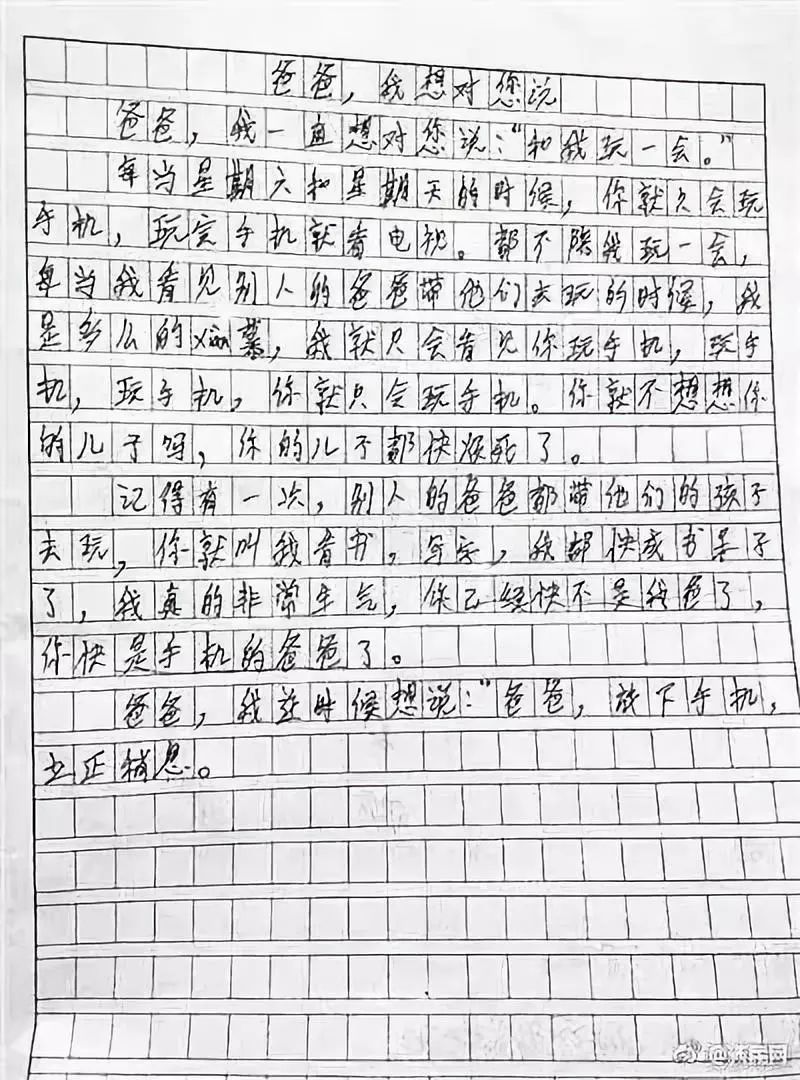 爸爸，我想对您说
爸爸，我一直想对您说：“和我玩一会。”
每当星期六和星期天的时候，你就久会玩
手机，玩完手机就看电视。都不陪我玩一会，
每当我看见别人的爸爸带他们去玩的时候，我
是多么的xian慕，我就只会看见你玩手机，玩手
机，玩手机，你就只会玩手机。你就不想想你
的儿子吗，你的儿子都快烦死了。
记得有一次，别人的爸爸都带他们的孩子
去玩，你就叫我看书，写字，我都快成书呆子
了，我真的非常生气，你已经快不是我爸了，
你快是手机的爸爸了。
爸爸，我这时候想说：“爸爸，放下手机，
立正稍息。